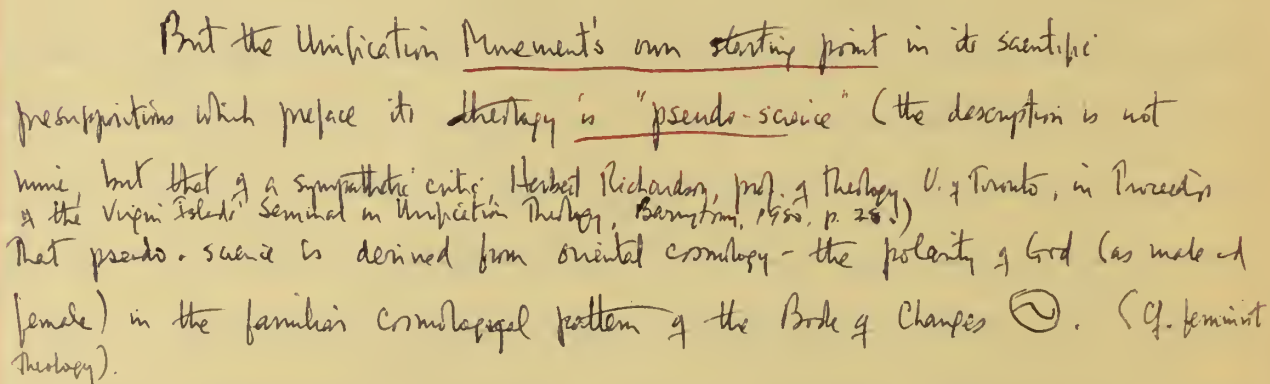 But the Unification Movement's own starting point in its scientific
presuppositions which preface its theology is "pseudo-science" (the description is not
mine, but that of a sympathetic critic, Herbert Richardson, prof. of theology, U. of Toronto, in Proceedings
of the Virgin Islands' Seminar on Unification Theology, Barrytown, 1980, p. 28.)
That pseudo-science is derived from oriental cosmology - the polarity of God (as male and
female) in the familiar cosmological pattern of the Book of Changes. (Cf. feminist
theology).